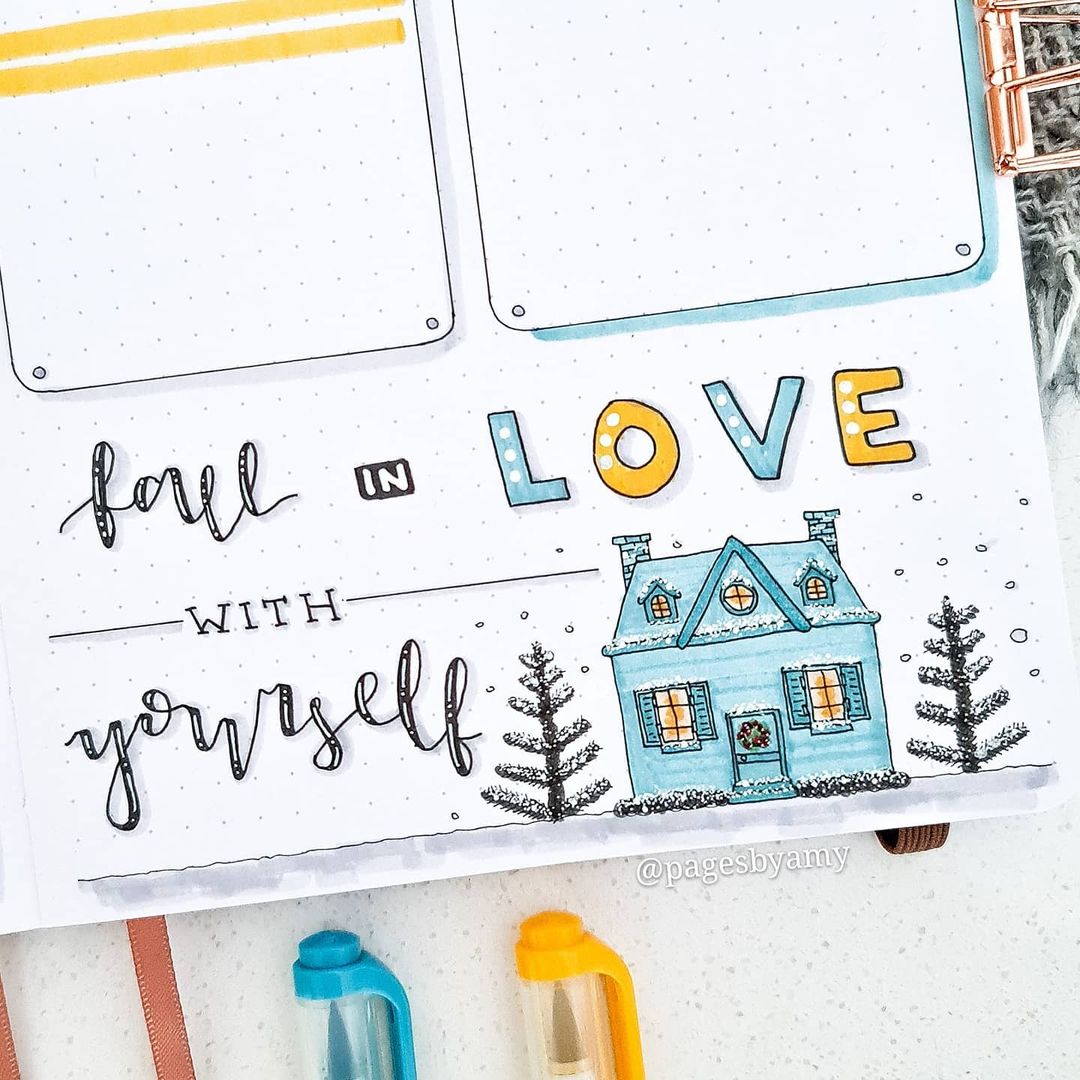 fall IN LOVE
WITH
yourself
@pagesbyamy